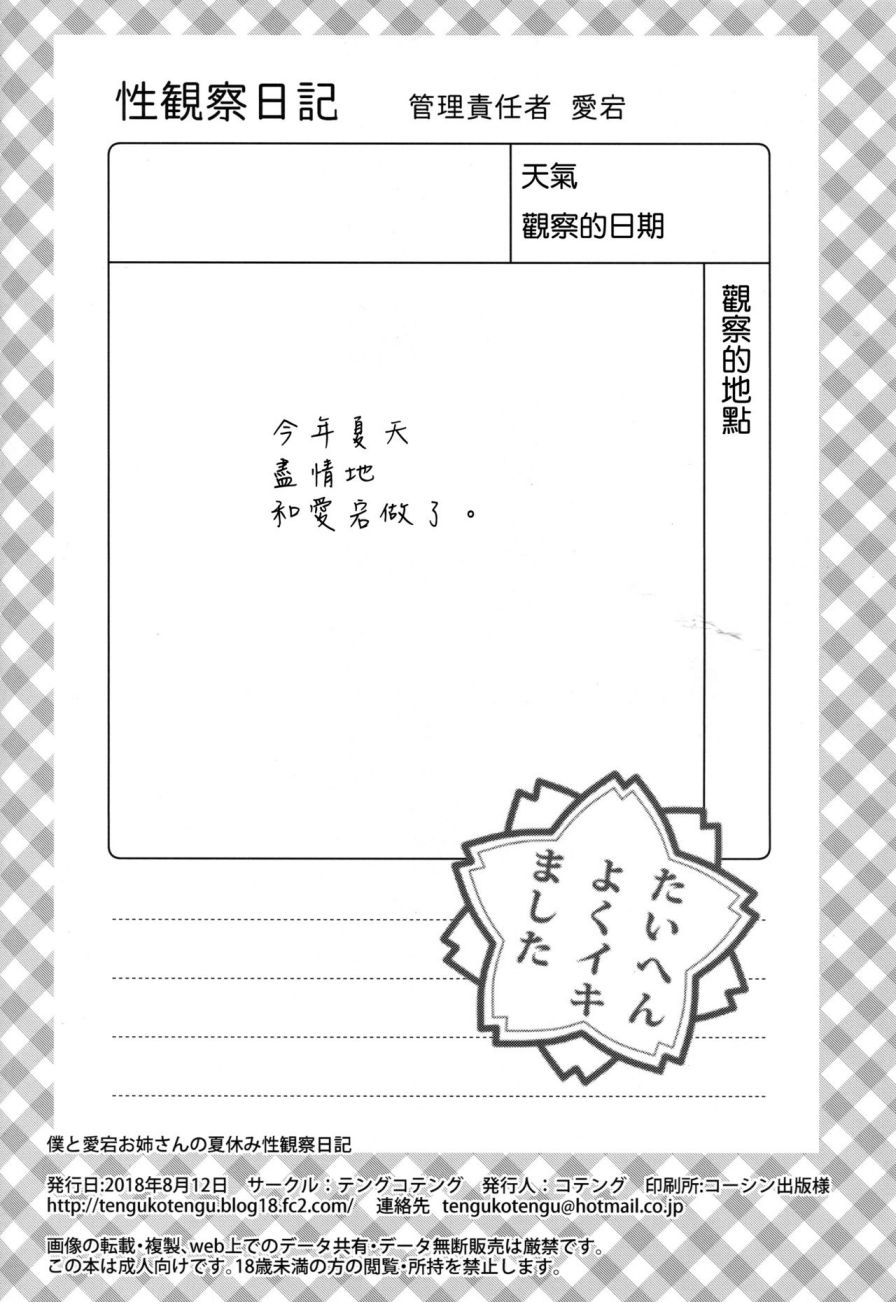 性観察日記
管理責任者 愛宕
天氣
觀察的日期
觀察的地點
今年夏天
盡情地
和愛宕做了。
たいへん
よくイキ
ました
僕と愛宕お姉さんの夏休み性観察日記
発行日:2018年8月12日 サークル:テングコテング 発行人:コテング 印刷所:コーシン出版様
http://tengukotengu.blog18.fc2.com/ 連絡先 tengukotengu@hotmail.co.jp
画像の転載・複製、web上でのデータ共有・データ無断販売は厳禁です。
この本は成人向けです。18歳未満の方の閲覧・所持を禁止します。